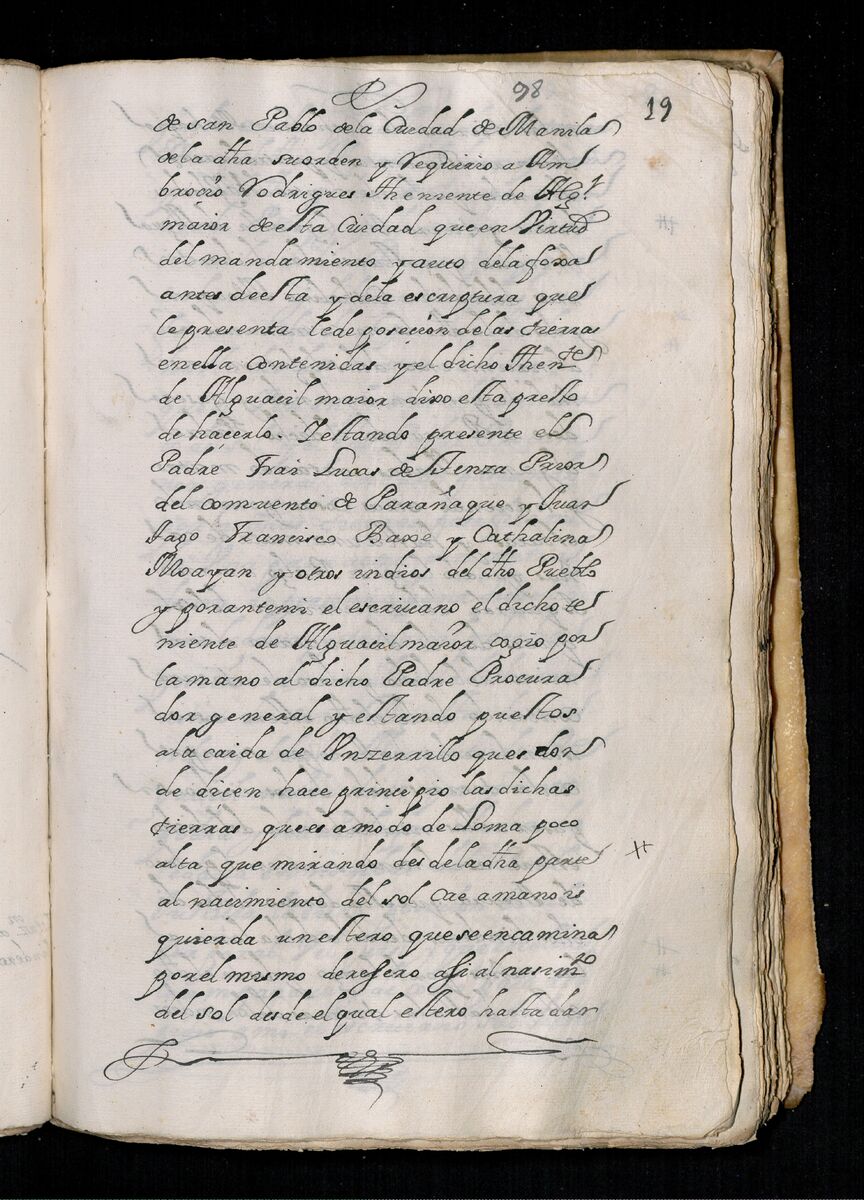 98
19
de san Pablo dela Ciudad de Manila
dela dha su orden y Requirio a Am
brocio Rodrigues Theniente de Algl
maior de esta Ciudad que en Virtud
del mandamiento y auto dela foxa
antes de esta y dela escriptura que
le presenta le de posecion de las tierras
en ella contenidas y el dicho Thente
de Alguacil maior dixo esta presto
de hacerlo. Y estando presente el
Padre Frai Lucas de Prior
del comuento de Parañaque y Juan
Iago Francisco Baxe y Cathalina
Moayan y otros indios del dho Pueblo
y por ante mi el escriuano el dicho te
niente de Alguacil maior cogio por
la mano al dicho Padre Procura
dor general y estando puestos
ala caida de Vnzerrillo ques don
de dicen hace principio las dichas
tierras que es a modo de Loma poco
alta que mirando desde la dha parte #
al nacimiento del sol cae a mano is
quierda un estero que se encamina
por el mismo deresero assi al nasimto
del sol desde el qual estero hasta dar